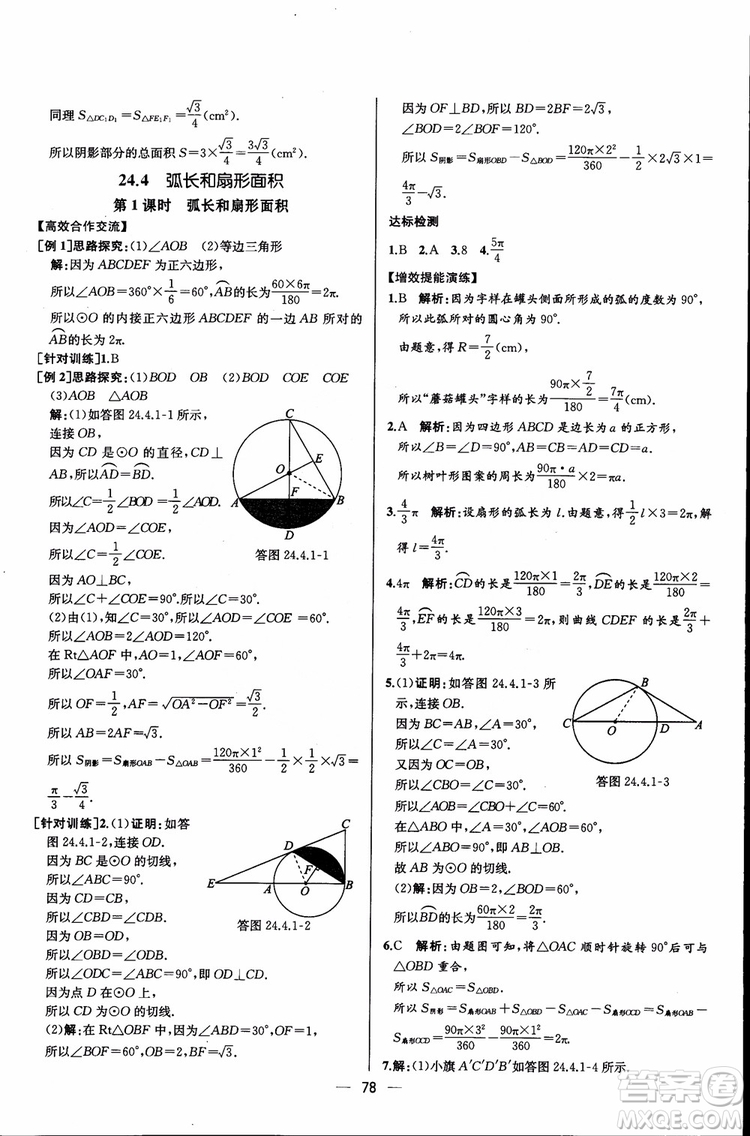 同理 S△DC₁D₁=S△FE₁F₁=√3/4(cm²).
所以阴影部分的总面积 S=3×√3/4=3√3/4(cm²).
24.4 弧长和扇形面积
第1课时 弧长和扇形面积
【高效合作交流】
[例1]思路探究:(1)∠AOB (2)等边三角形
解:因为 ABCDEF 为正六边形,
所以∠AOB=360°×1/6=60°,⌒AB的长为60×6π/180=2π.
所以⊙O 的内接正六边形 ABCDEF 的一边 AB 所对的
⌒AB的长为 2π.
[针对训练]1.B
[例2]思路探究:(1)BOD OB (2)BOD COE COE
(3)AOB △AOB
解:(1)如答图 24.4.1-1 所示,
连接 OB,
因为 CD 是⊙O 的直径,CD⊥
AB,所以⌒AD=⌒BD.
所以∠C=1/2∠BOD=1/2∠AOD.
因为∠AOD=∠COE,
所以∠C=1/2∠COE.
因为 AO⊥BC,
所以∠C+∠COE=90°.所以∠C=30°.
(2)由(1),知∠AOD=∠COE=60°,
所以∠AOB=2∠AOD=120°.
在 Rt△AOF 中,OA=1,∠AOF=60°,
所以∠OAF=30°.
所以 OF=1/2,AF=√(OA²-OF²)=√3/2.
所以 AB=2AF=√3.
所以 S阴影=S扇形OAB-S△OAB=120π×1²/360-1/2×1/2×√3=
π/3-√3/4.
C
E
O
F
A
B
D
答图 24.4.1-1
[针对训练]2.(1)证明:如答
图 24.4.1-2,连接 OD.
因为 BC 是⊙O 的切线,
所以∠ABC=90°.
因为 CD=CB,
所以∠CBD=∠CDB.
因为 OB=OD,
所以∠OBD=∠ODB.
所以∠ODC=∠ABC=90°,即 OD⊥CD.
因为点 D 在⊙O 上,
所以 CD 为⊙O 的切线.
(2)解:在 Rt△OBF 中,∠ABD=30°,OF=1,
所以∠BOF=60°,OB=2,BF=√3.
C
D
F
E
A
O
B
答图 24.4.1-2
因为 OF⊥BD,所以 BD=2BF=2√3,
∠BOD=2∠BOF=120°.
所以 S阴影=S扇形OBD-S△BOD=120π×2²/360-1/2×2√3×1=
4π/3-√3.
达标检测
1.B 2.A 3.8 4.5π/4
【增效提能演练】
1.B 解析:因为字样在罐头侧面所形成的弧的度数为 90°,
所以此弧所对的圆心角为 90°.
由题意,得 R=7/2(cm),
所以“蘑菇罐头”字样的长为90π×7/2/180=7/4π(cm).
2.A 解析:因为四边形 ABCD 是边长为 a 的正方形,
所以∠B=∠D=90°,AB=CB=AD=CD=a.
所以树叶形图案的周长为90π·a/180×2=πa.
3.4/3π 解析:设扇形的弧长为 l.由题意,得1/2l×3=2π,解
得 l=4π/3.
4.4π 解析:⌒CD的长是120π×1/180=2π/3,⌒DE的长是120π×2/180=
4π/3,⌒EF的长是120π×3/180=2π,则曲线 CDEF 的长是2π/3+
4π/3+2π=4π.
5.(1)证明:如答图 24.4.1-3 所
示,连接 OB.
因为 BC=AB,∠A=30°,
所以∠C=∠A=30°.
又因为 OC=OB,
所以∠CBO=∠C=30°.
所以∠AOB=∠C+∠CBO=60°.
在△ABO 中,∠A=30°,∠AOB=60°,
所以∠ABO=90°,即 AB⊥OB.
故 AB 为⊙O 的切线.
(2)解:因为 OB=2,∠BOD=60°,
所以⌒BD的长度为60π×2/180=2π/3.
B
C
O
D
A
答图 24.4.1-3
6.C 解析:由题图可知,将△OAC 顺时针旋转 90°后可与
△OBD 重合,
所以 S△OAC=S△OBD.
所以 S阴影=S扇形OAB+S△OAC-S△OBD-S扇形OCD=S扇形OAB-
S扇形OCD=90π×3²/360-90π×1²/360=2π.
7.解:(1)小旗 A′C′D′B′如答图 24.4.1-4 所示.
— 78 —
答案圈